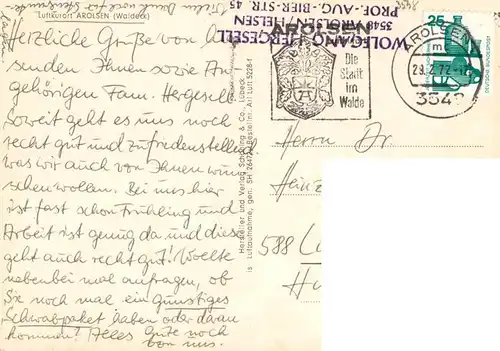 Luftkurort AROLSEN (Waldeck)
Herzliche Grüße von A
senden Ihnen sowie An
gehörigen Fam. Hergesell
Soweit geht es uns noch
recht gut und zufriedenstellend
was wir auch von Ihnen wün
schen wollen. Bei uns hier
ist fast schon Frühling und
Arbeit ist genug da und diese
geht auch recht gut! Wollte
nebenbei mal anfragen, ob
Sie noch mal ein günstiges
Schwabpaket haben oder daran
kommen? Alles Gute noch
von uns.
WOLFGANG HERGESELL
3548 AROLSEN/HELSEN
PROF.-AUG.-BIER-STR. 45
AROLSEN
Die
Stadt
im
Walde
AROLSEN
29.2.72
3548
25
Hersteller und Verlag Schöning & Co., Lübeck
Luftaufnahme, gen. SH 2647 Bestellnr. Arl Luft 5228-1
Herrn Dr.
Heinz
588 Lü